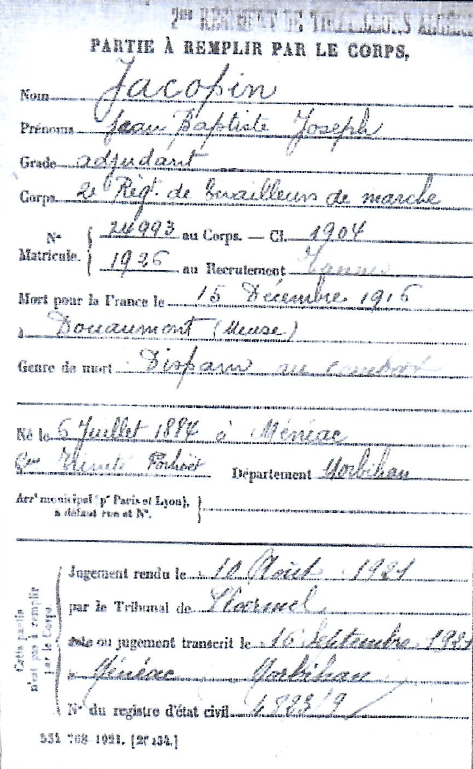 2me RÉGIMENT DE TIRAILLEURS ALGÉR
PARTIE À REMPLIR PAR LE CORPS.
Nom Jacopin
Prénoms Jean Baptiste Joseph
Grade adjudant
Corps 2e Rég. de Tirailleurs de marche
N° 24993 au Corps. — Cl. 1904
Matricule. 1926 au Recrutement Vannes
Mort pour la France le 15 Décembre 1916
à Douaumont (Meuse)
Genre de mort Disparu au combat
Né le 6 Juillet 1884 à Ménéac
Con Trinité Porhoët Département Morbihan
Arrt municipal (pr Paris et Lyon),
à défaut rue et N°.
Cette partie
n'est pas à remplir
par le Corps.
Jugement rendu le 10 Août 1921
par le Tribunal de Ploërmel
acte ou jugement transcrit le 16 Septembre 1921
à Ménéac Morbihan
N° du registre d'état civil
534-708-1921. [26434.]